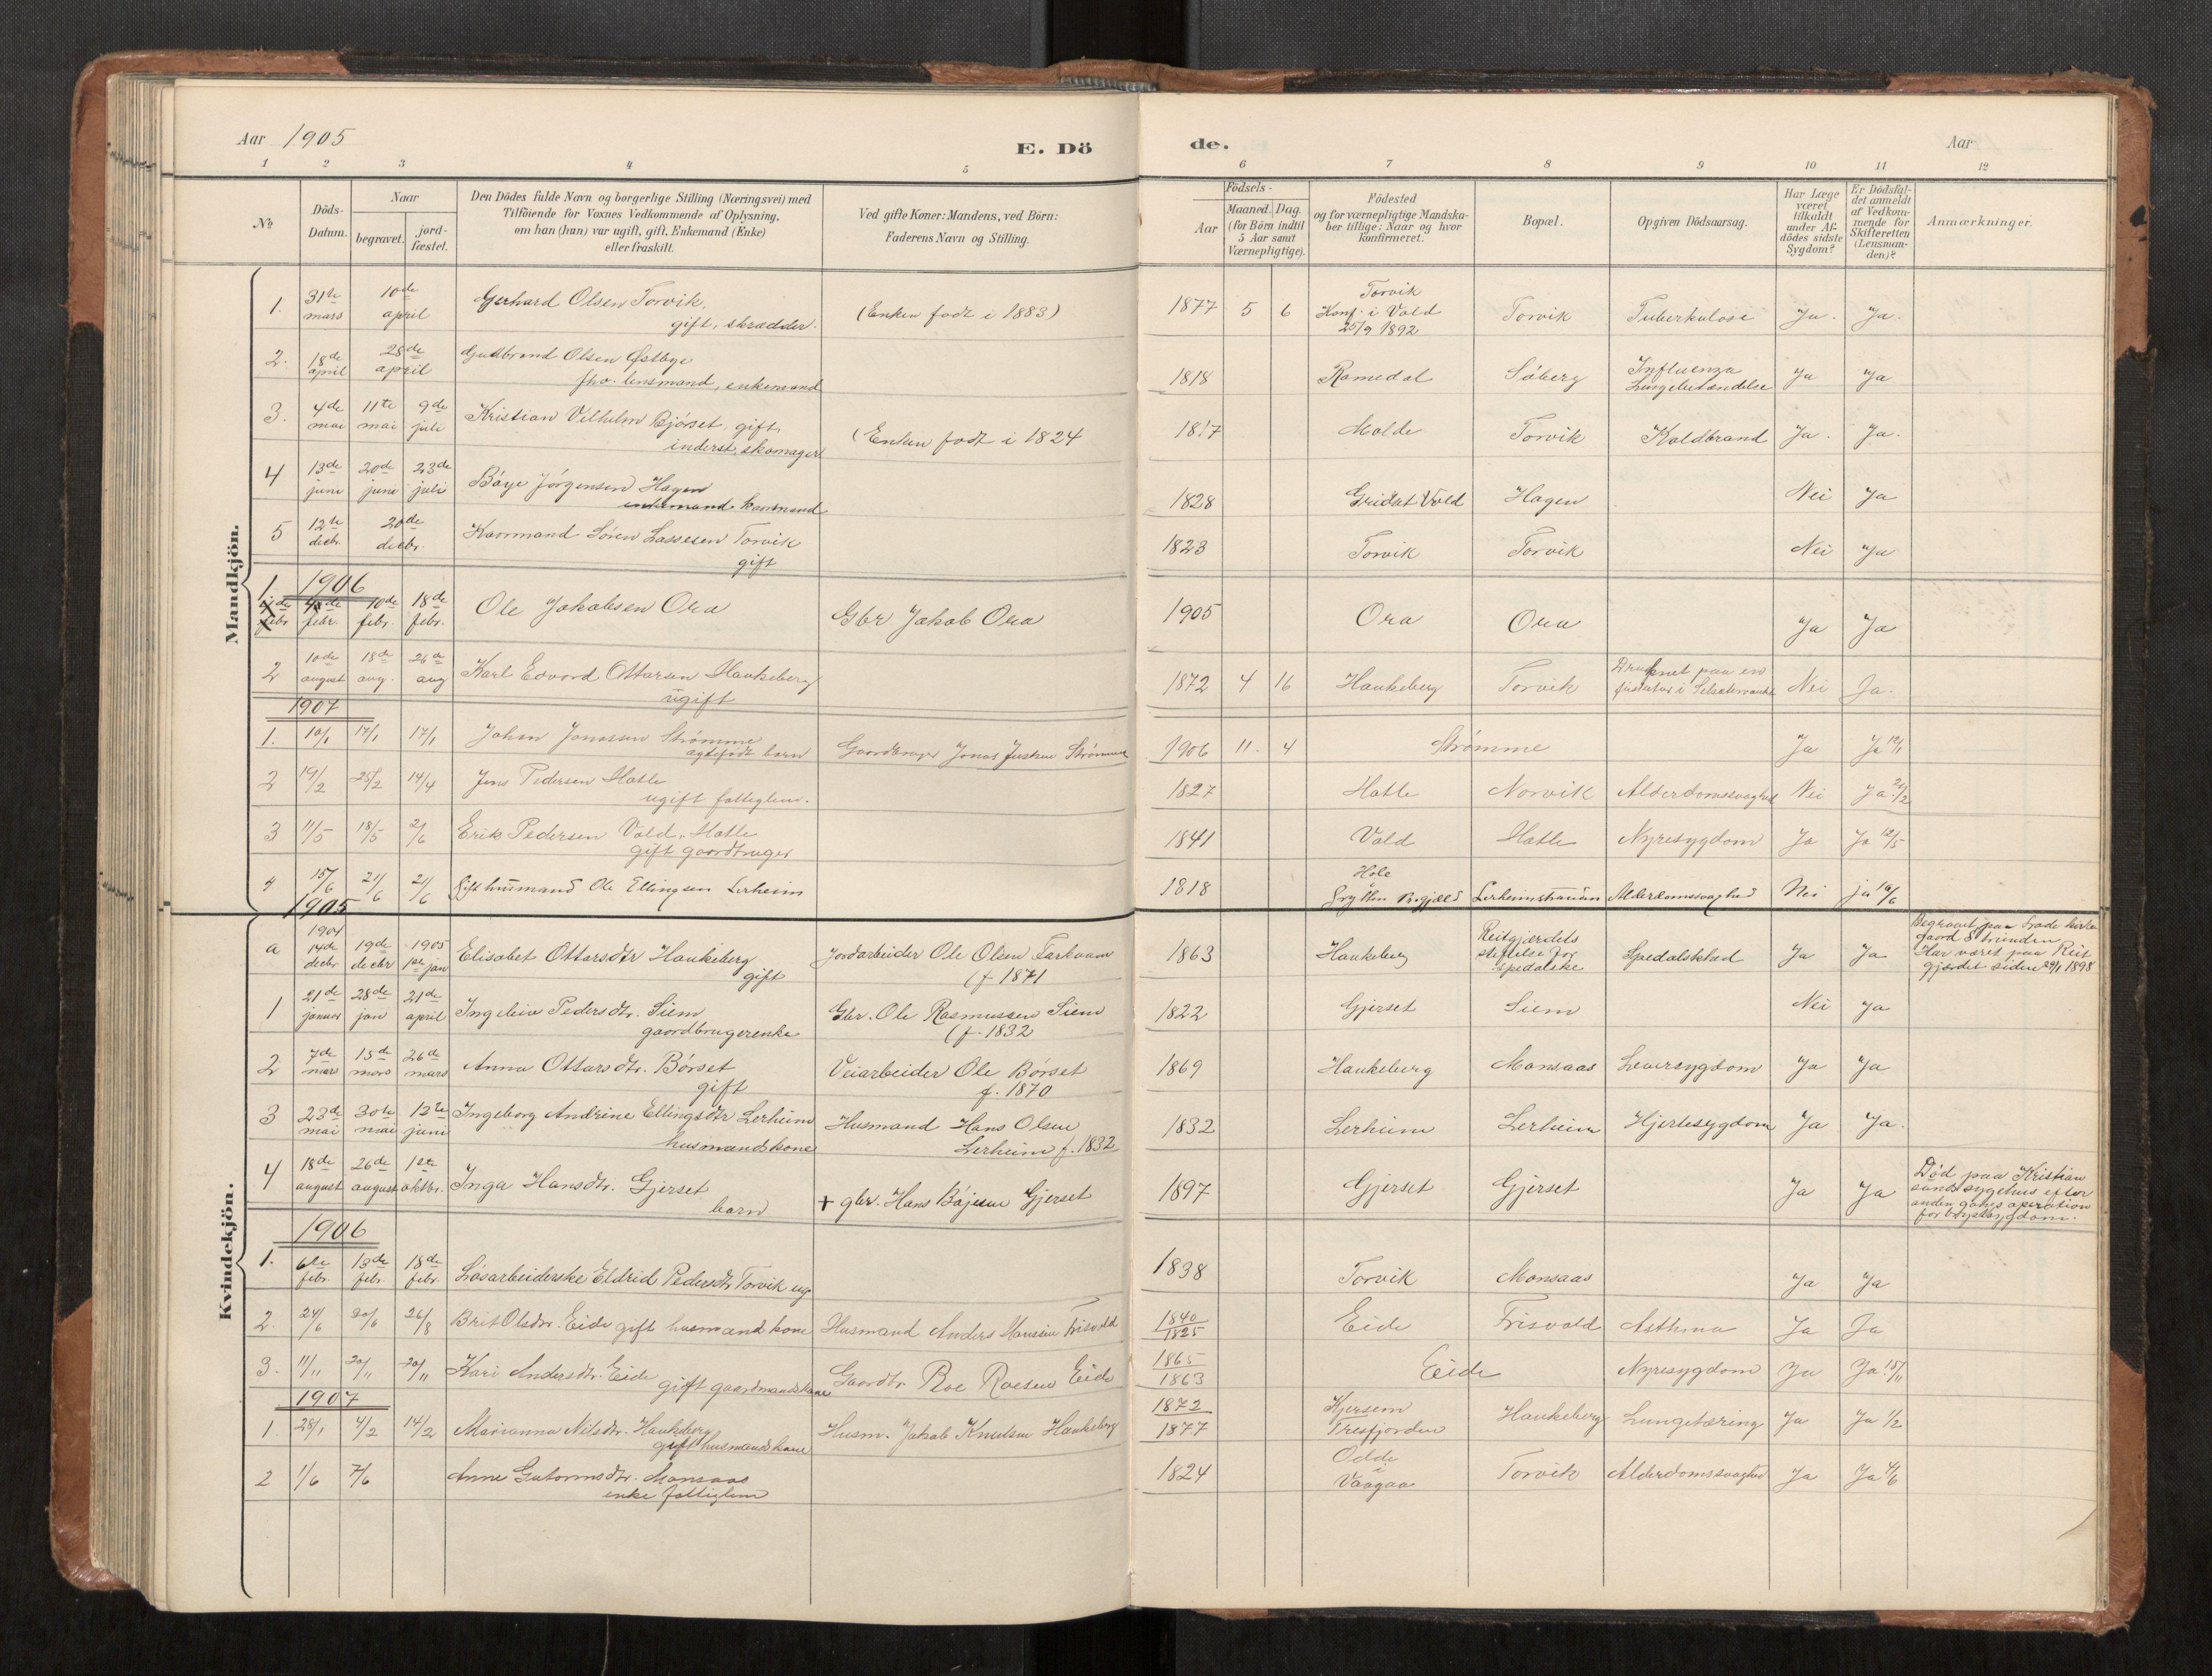 Aar 1905
E. Dö
de.
Aar
1 2 3 4 5 6 7 8 9 10 11 12
No
Döds-Datum.
Naar
begravet.
jord-fæstet.
Den Dödes fulde Navn og borgerlige Stilling (Næringsvei) med
Tilföiende for Voxnes Vedkommende af Oplysning,
om han (hun) var ugift, gift, Enkemand (Enke)
eller fraskilt.
Ved gifte Koner: Mandens, ved Börn:
Faderens Navn og Stilling.
Födsels-
Aar
Maaned. Dag.
(for Börn indtil
5 Aar samt
Værnepligtige).
Födested
og for værnepligtige Mandska-
ber tillige: Naar og hvor
konfirmeret.
Bopæl.
Opgiven Dödsaarsag.
Har Læge
været
tilkaldt
under Af-
dödes sidste
Sygdom?
Er Dödsfal-
det anmeldt
af Vedkom-
mende for
Skifteretten
(Lensman-
den)?
Anmærkninger.
Mandkjön.
1. 31te mars 10de april Gerhard Olsen Torvik, gift, skrædder. (Enken født i 1883) 1877 5 6 Torvik Konf. i Vold 25/9 1892 Torvik Tuberkulose Ja. Ja.
2. 18de april 28de april Gudbrand Olsen Østbye fhv. lensmand, enkemand 1818 Romedal Søberg Influenza Lungebetændelse Ja Ja
3. 4de mai 11te mai 9de juli Kristian Vilhelm Bjørset, gift, inderst, skomager (Enken født i 1824 1817 Molde Torvik Koldbrand Ja. Ja.
4 13de juni 20de juni 23de juli Bøye Jørgensen Hagen enkemand kaarmand 1828 Gridset Vold Hagen Nei Ja
5 12te decbr. 20de decbr. Kaarmand Søren Lassesen Torvik gift 1823 Torvik Torvik Nei Ja
1906
1. febr. 10de febr. 18de febr. Ole Jakobsen Ora Gbr Jakob Ora 1905 Ora Ora Ja Ja
2 10de august 18de aug. 26de aug Karl Edvard Ottarsen Haukeberg ugift 1872 4 16 Haukeberg Torvik Druknet paa en Nei Ja.
1907
1. 10/1 17/1 17/1 Johan Jonassen Strømme ægtefødt barn Gaardbruger Jonas Strømme 1906 11. 4 Strømme Ja Ja 12/1
2 19/2 25/2 14/4 Jens Pedersen Hatle ugift fattiglem. 1827 Hatle Norvik Alderdomssvaghed Nei Ja
3 11/5 18/5 2/6 Erik Pedersen Vold, Hatle gift gaardbruger 1841 Vold Hatle Nyresygdom Ja Ja 12/5
4 15/6 21/6 21/6 Gift husmand Ole Ellingsen Lerheim 1818 Hole Grytten Prgjæld Lerheimstranden Alderdomssvaghed Nei ja
Kvindekjön.
1905
a 1904 14de decbr 19de decbr 1905 1ste jan Elisabet Ottarsdtr Haukeberg gift Jordarbeider Ole Olsen (f 1871 1863 Haukeberg Reitgjærdets stiftelse for Spedalske Spedalskhed Ja Ja Begravet paa Lade kirke gaard Strinden Har været paa Reit gjærdet siden 29/1 1898
1 21de januar 28de jan 21de april Ingeleiv Pedersdtr. Siem gaardbrugerenke Gbr. Ole Rasmussen Siem (f. 1832 1822 Gjerset Siem Nei Ja
2 7de mars 15de mars 26de mars Anna Ottarsdtr. Børset gift Veiarbeider Ole Børset f. 1870 1869 Haukeberg Monsaas Leversygdom Ja Ja
3 23de mai 30te mai 12te juni Ingeborg Andrine Ellingsdtr Lerheim husmandskone Husmand Hans Olsen Lerheim f. 1832 1832 Lerheim Lerheim Hjertesygdom Ja Ja.
4 18de august 26de august 1ste oktbr. Inga Hansdtr. Gjerset barn + gbr. Hans Bøjesen Gjerset 1897 Gjerset Gjerset Ja Ja Død paa Kristian sunds sygehus efter anden gangs operation for brystsygdom.
1906
1. 6te febr. 13de febr. 18de febr. Løsarbeiderske Eldrid Pedersdtr Torvik ug 1838 Torvik Monsaas Ja Ja
2. 24/6 30/6 26/8 Brit Olsdtr. Eide gift husmandskone Husmand Anders Hanssen Frisvold 1840 1825 Eide Frisvold Asthma Ja Ja
3. 11/11 20/11 20/11 Kari Andersdtr. Eide gift gaardmandskone Gaardbr. Roe Roesen Eide 1865 1863 Eide Nyresygdom Ja Ja 15/11
1907
1. 28/1 4/2 14/2 Marianna Nilsdtr. Haukeberg gift husmandskone Husm. Jakob Knutsen Haukeberg 1872 1877 Kjersem Tresfjorden Haukeberg Lungetæring Ja Ja 1/2
2 1/6 7/6 Anne Gutormsdtr. Monsaas enke fattiglem 1824 Odde i Vaagaa Torvik Alderdomssvaghed Ja Ja 4/6